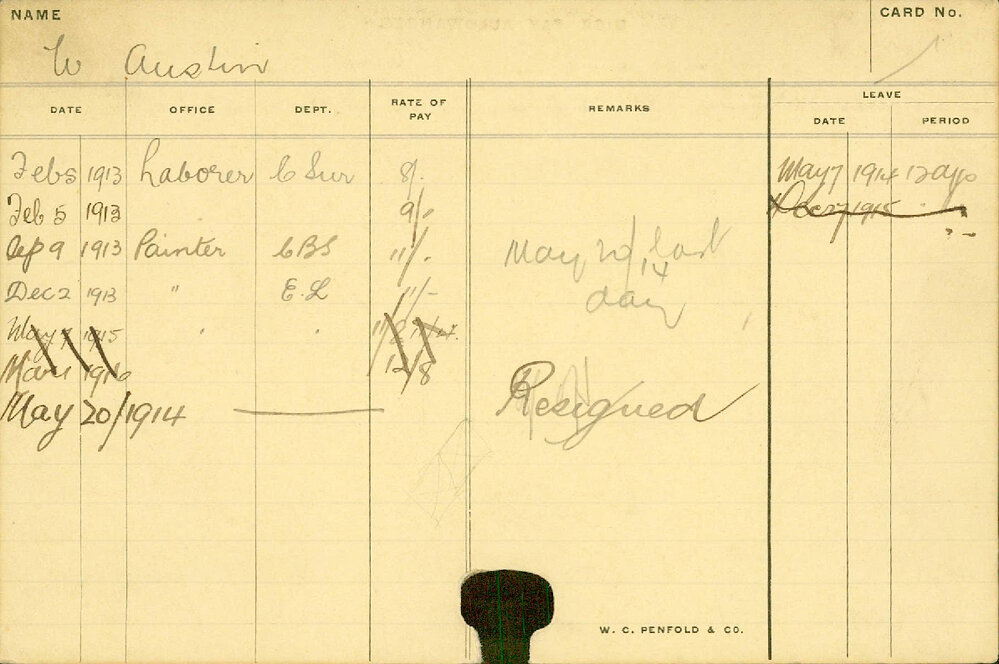 NAME
CARD No.
W Austin
DATE OFFICE DEPT. RATE OF PAY REMARKS LEAVE
DATE PERIOD
Feb 5 1913 Laborer C Sur 8/. May 7 1914 12 days
Feb 5 1913 9/- Dec 27 1915
Sep 9 1913 Painter CBS 11/. May 20/14 last
Dec 2 1913 " E.L 11/- day
May 7 1915
Mar 1916 12/8
May 20/1914 Resigned
W. C. PENFOLD & CO.